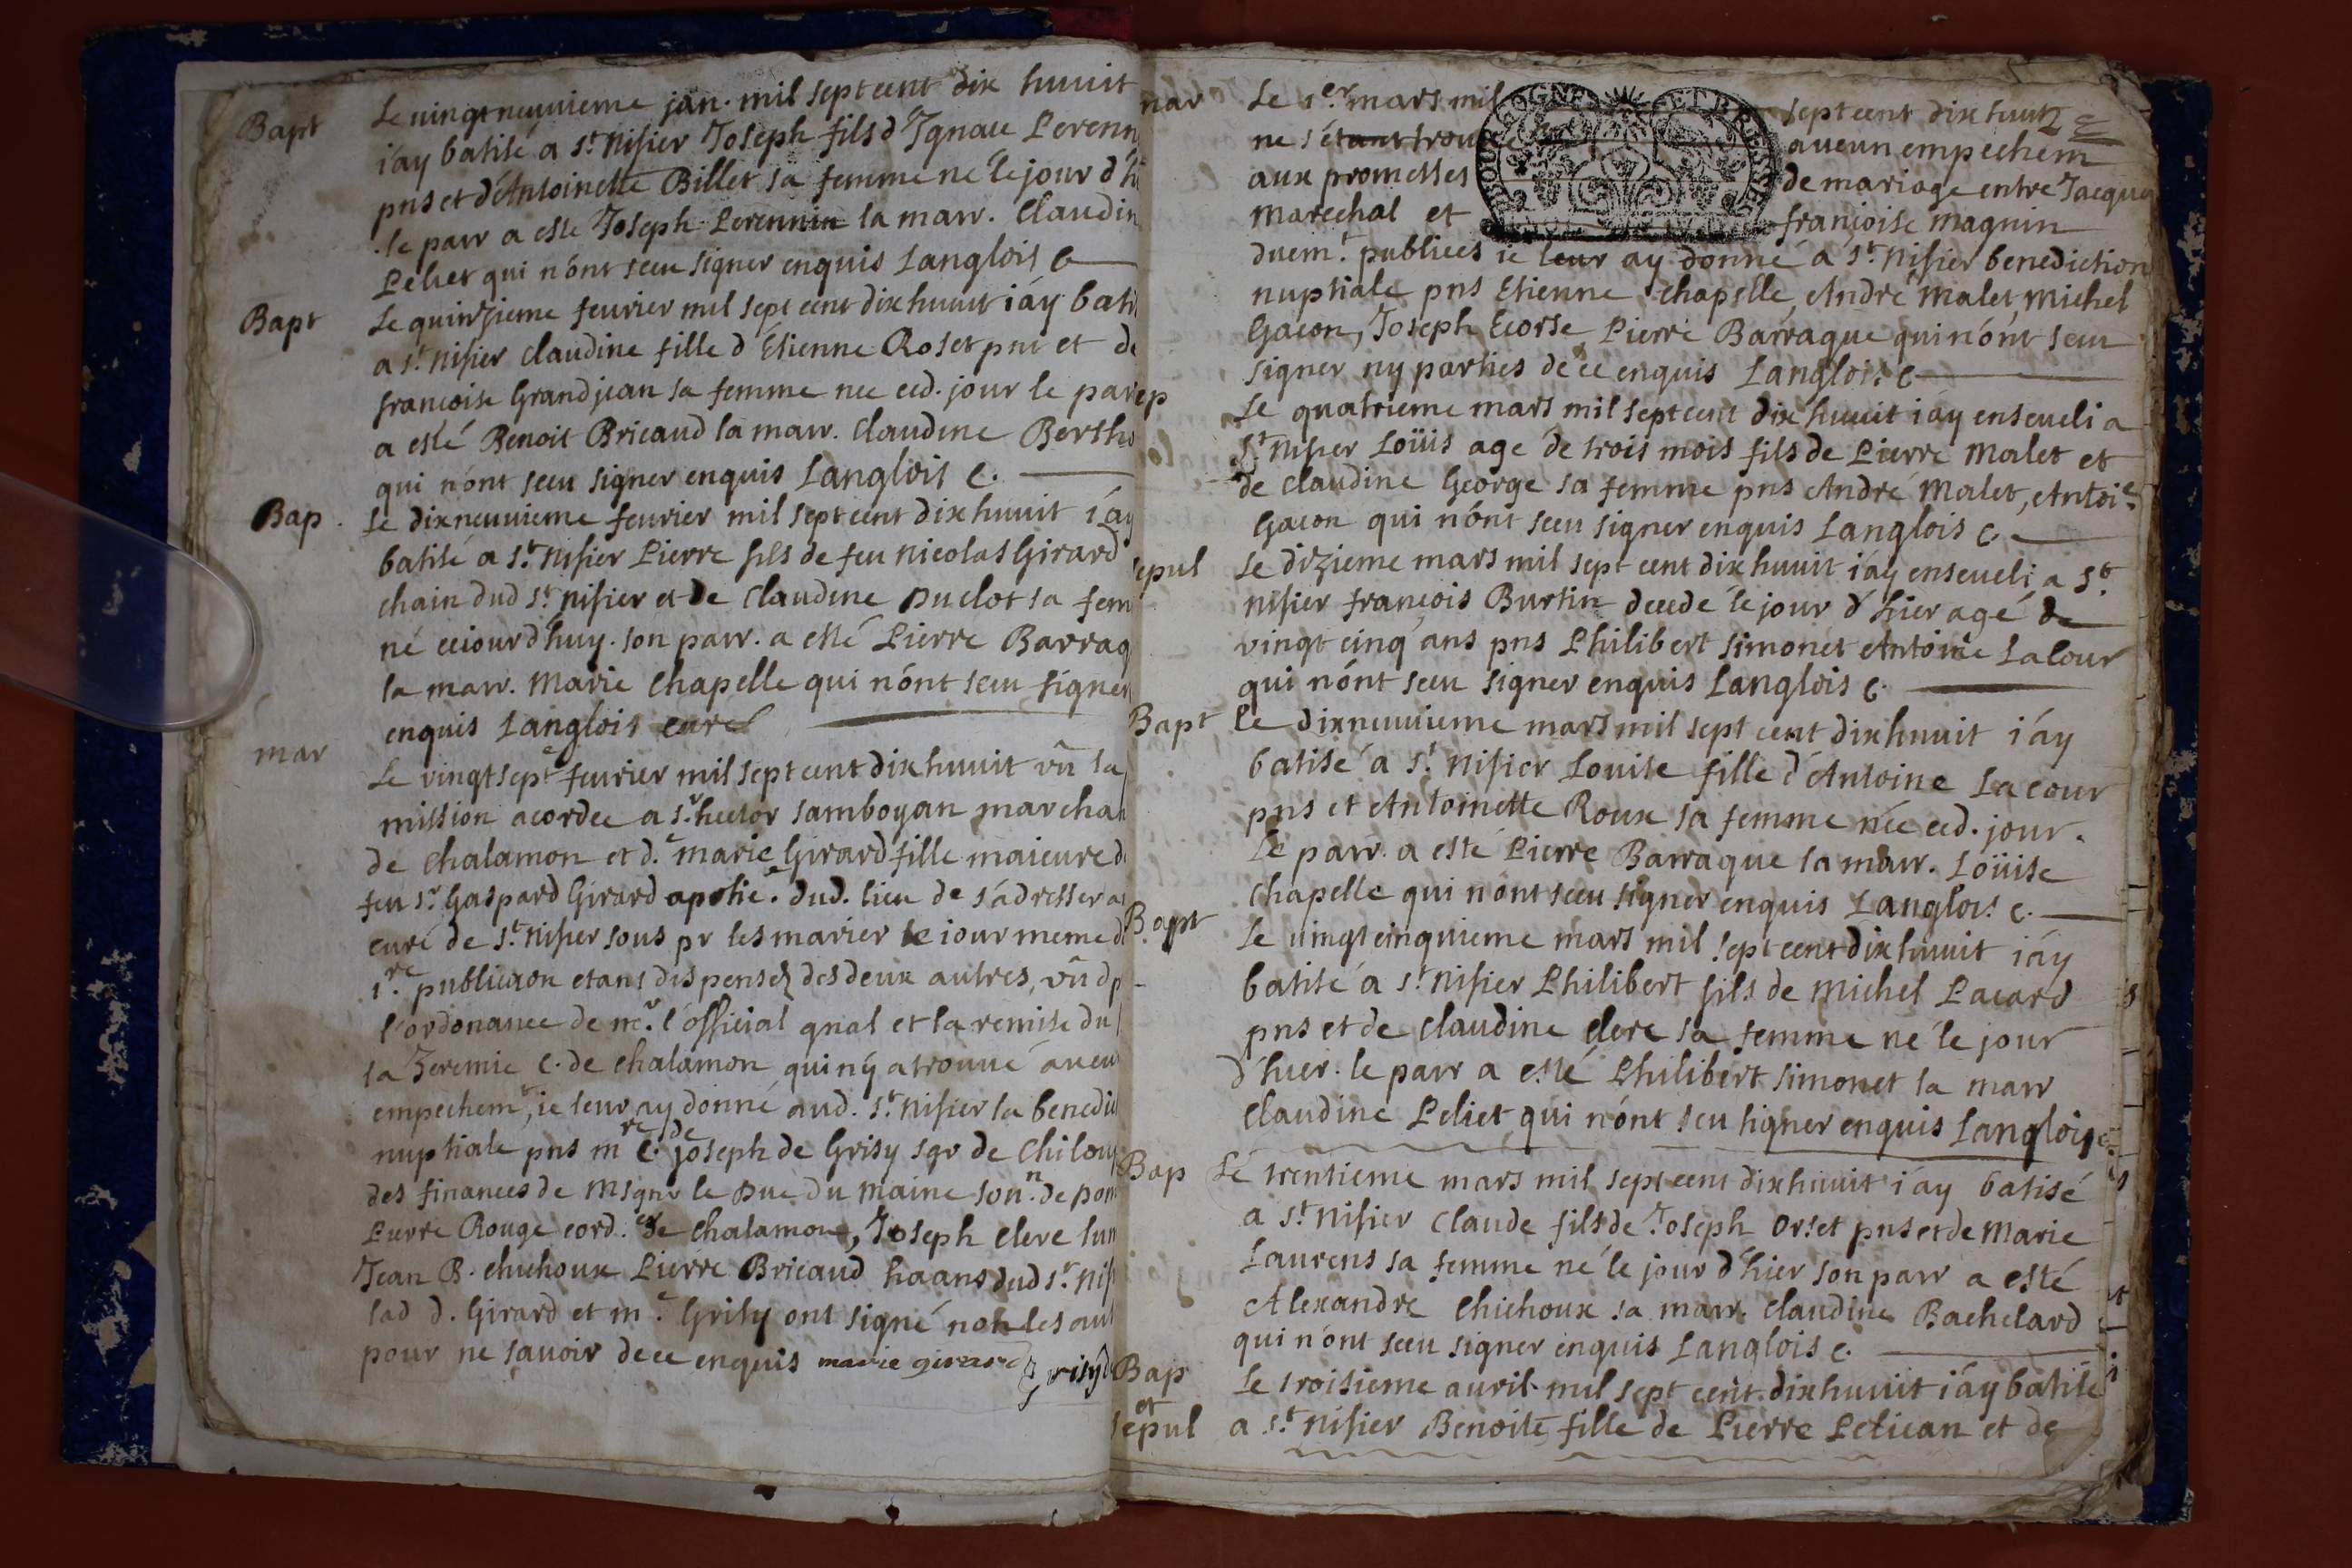 Bapt
Le vingt neuuieme jan. mil sept cent dix huuit
i'ay batisé a St. Nisier Joseph fils d'Ignace Perenn
pns et d'Antoinette Billet sa femme né le jour d'hi
le parr a esté Joseph Perennin la marr. Claudin
Peliet qui n'ont sceu signer enquis Langlois C
Bapt
Le quinzieme feurier mil sept cent dix huuit i'ay bati
a St. Nisier Claudine fille d'Etienne Roset pnt et de
francoise Grandjean sa femme nee ced. jour le par
a esté Benoit Bricaud la marr. Claudine Bertho
qui n'ont sceu signer enquis Langlois C.
Bap.
Le dixneuuieme feurier mil sept cent dix huuit i'ay
batisé a St. Nisier Pierre fils de feu Nicolas Girard
chain dud St. Nisier et de Claudine Duclot sa fem
né ceiourd'huy. son parr. a esté Pierre Barraq
la marr. Marie Chapelle qui n'ont sceu signer
enquis Langlois curé
mar
Le vingt septe feurier mil sept cent dix huuit vû la
mission acordee a Sr. hector Samboyan marchan
de Chalamon et d.e Marie Girard fille maieure de
feu Sr. Gaspard Girard apothie. dud. lieu de s'adresser a
curé de St. Nisier sous pr les marier le iour meme d
1re. publicaon etant dispensez des deux autres, vû
l'ordonance de mr. l'official gnal et la remise du
la Jeremie C. de Chalamon qui n'y a trouué aucu
empechemt, ie leur ay donné aud. St. Nisier la benedic
nuptiale pns mre C. de Joseph de Grisy sgr de Chilou
des finances de Msgnr le Duc du Maine son.n de pon
Pierre Rouge cord.er de Chalamon, Joseph Clere lun
Jean B. Chichoux Pierre Bricaud haans dud St. Nis
lad d. Girard et mr. Grisy ont signé non les aut
pour ne sauoir de ce enquis marie girard Grisy
mar
Le 1er. mars mil sept cent dix huuit
ne s'étant trouué aucun empechem
aux promesses de mariage entre Jacque
Marechal et francoise Magnin
duemt. publiees ie leur ay donné a St. Nisier benediction
nuptiale pns Etienne Chapelle, André Malet, Michel
Gacon, Joseph Ecorse, Pierre Barraque qui n'ont sceu
signer ny parties de ce enquis Langlois C
Le quatrieme mars mil sept cent dix huuit i'ay enseueli a
St. Nisier Loüis agé de trois mois fils de Pierre Malet et
de Claudine George sa femme pns André Malet, Antoi.e
Gacon qui n'ont sceu signer enquis Langlois C.
sepul
Le dizieme mars mil sept cent dix huuit i'ay enseueli a St.
Nisier francois Burtin decedé le jour d'hier agé de
vingt cinq ans pns Philibert Simonet Antoine Lacour
qui n'ont sceu signer enquis Langlois C.
Bapt
Le dixneuuieme mars mil sept cent dix huuit i'ay
batisé a St. Nisier Louise fille d'Antoine Lacour
pns et Antoinette Roux sa femme née ced. jour.
Le parr. a esté Pierre Barraque la marr. Loüise
Chapelle qui n'ont sceu signer enquis Langlois C.
Bapt
Le vingt cinquieme mars mil sept cent dix huuit i'ay
batisé a St. Nisier Philibert fils de Michel Pacard
pns et de Claudine Clere sa femme né le jour
d'hier. le parr a esté Philibert Simonet la marr
Claudine Peliet qui n'ont sceu signer enquis Langlois C.
Bap
Le trentieme mars mil sept cent dix huuit i'ay batisé
a St. Nisier Claude fils de Joseph Orset pns et de Marie
Laurens sa femme né le jour d'hier son parr a esté
Alexandre Chichoux sa marr. Claudine Bachelard
qui n'ont sceu signer enquis Langlois C.
Bap
et
sepul
Le troisieme auril mil sept cent dix huuit i'ay batisé
a St. Nisier Benoite fille de Pierre Pelican et de